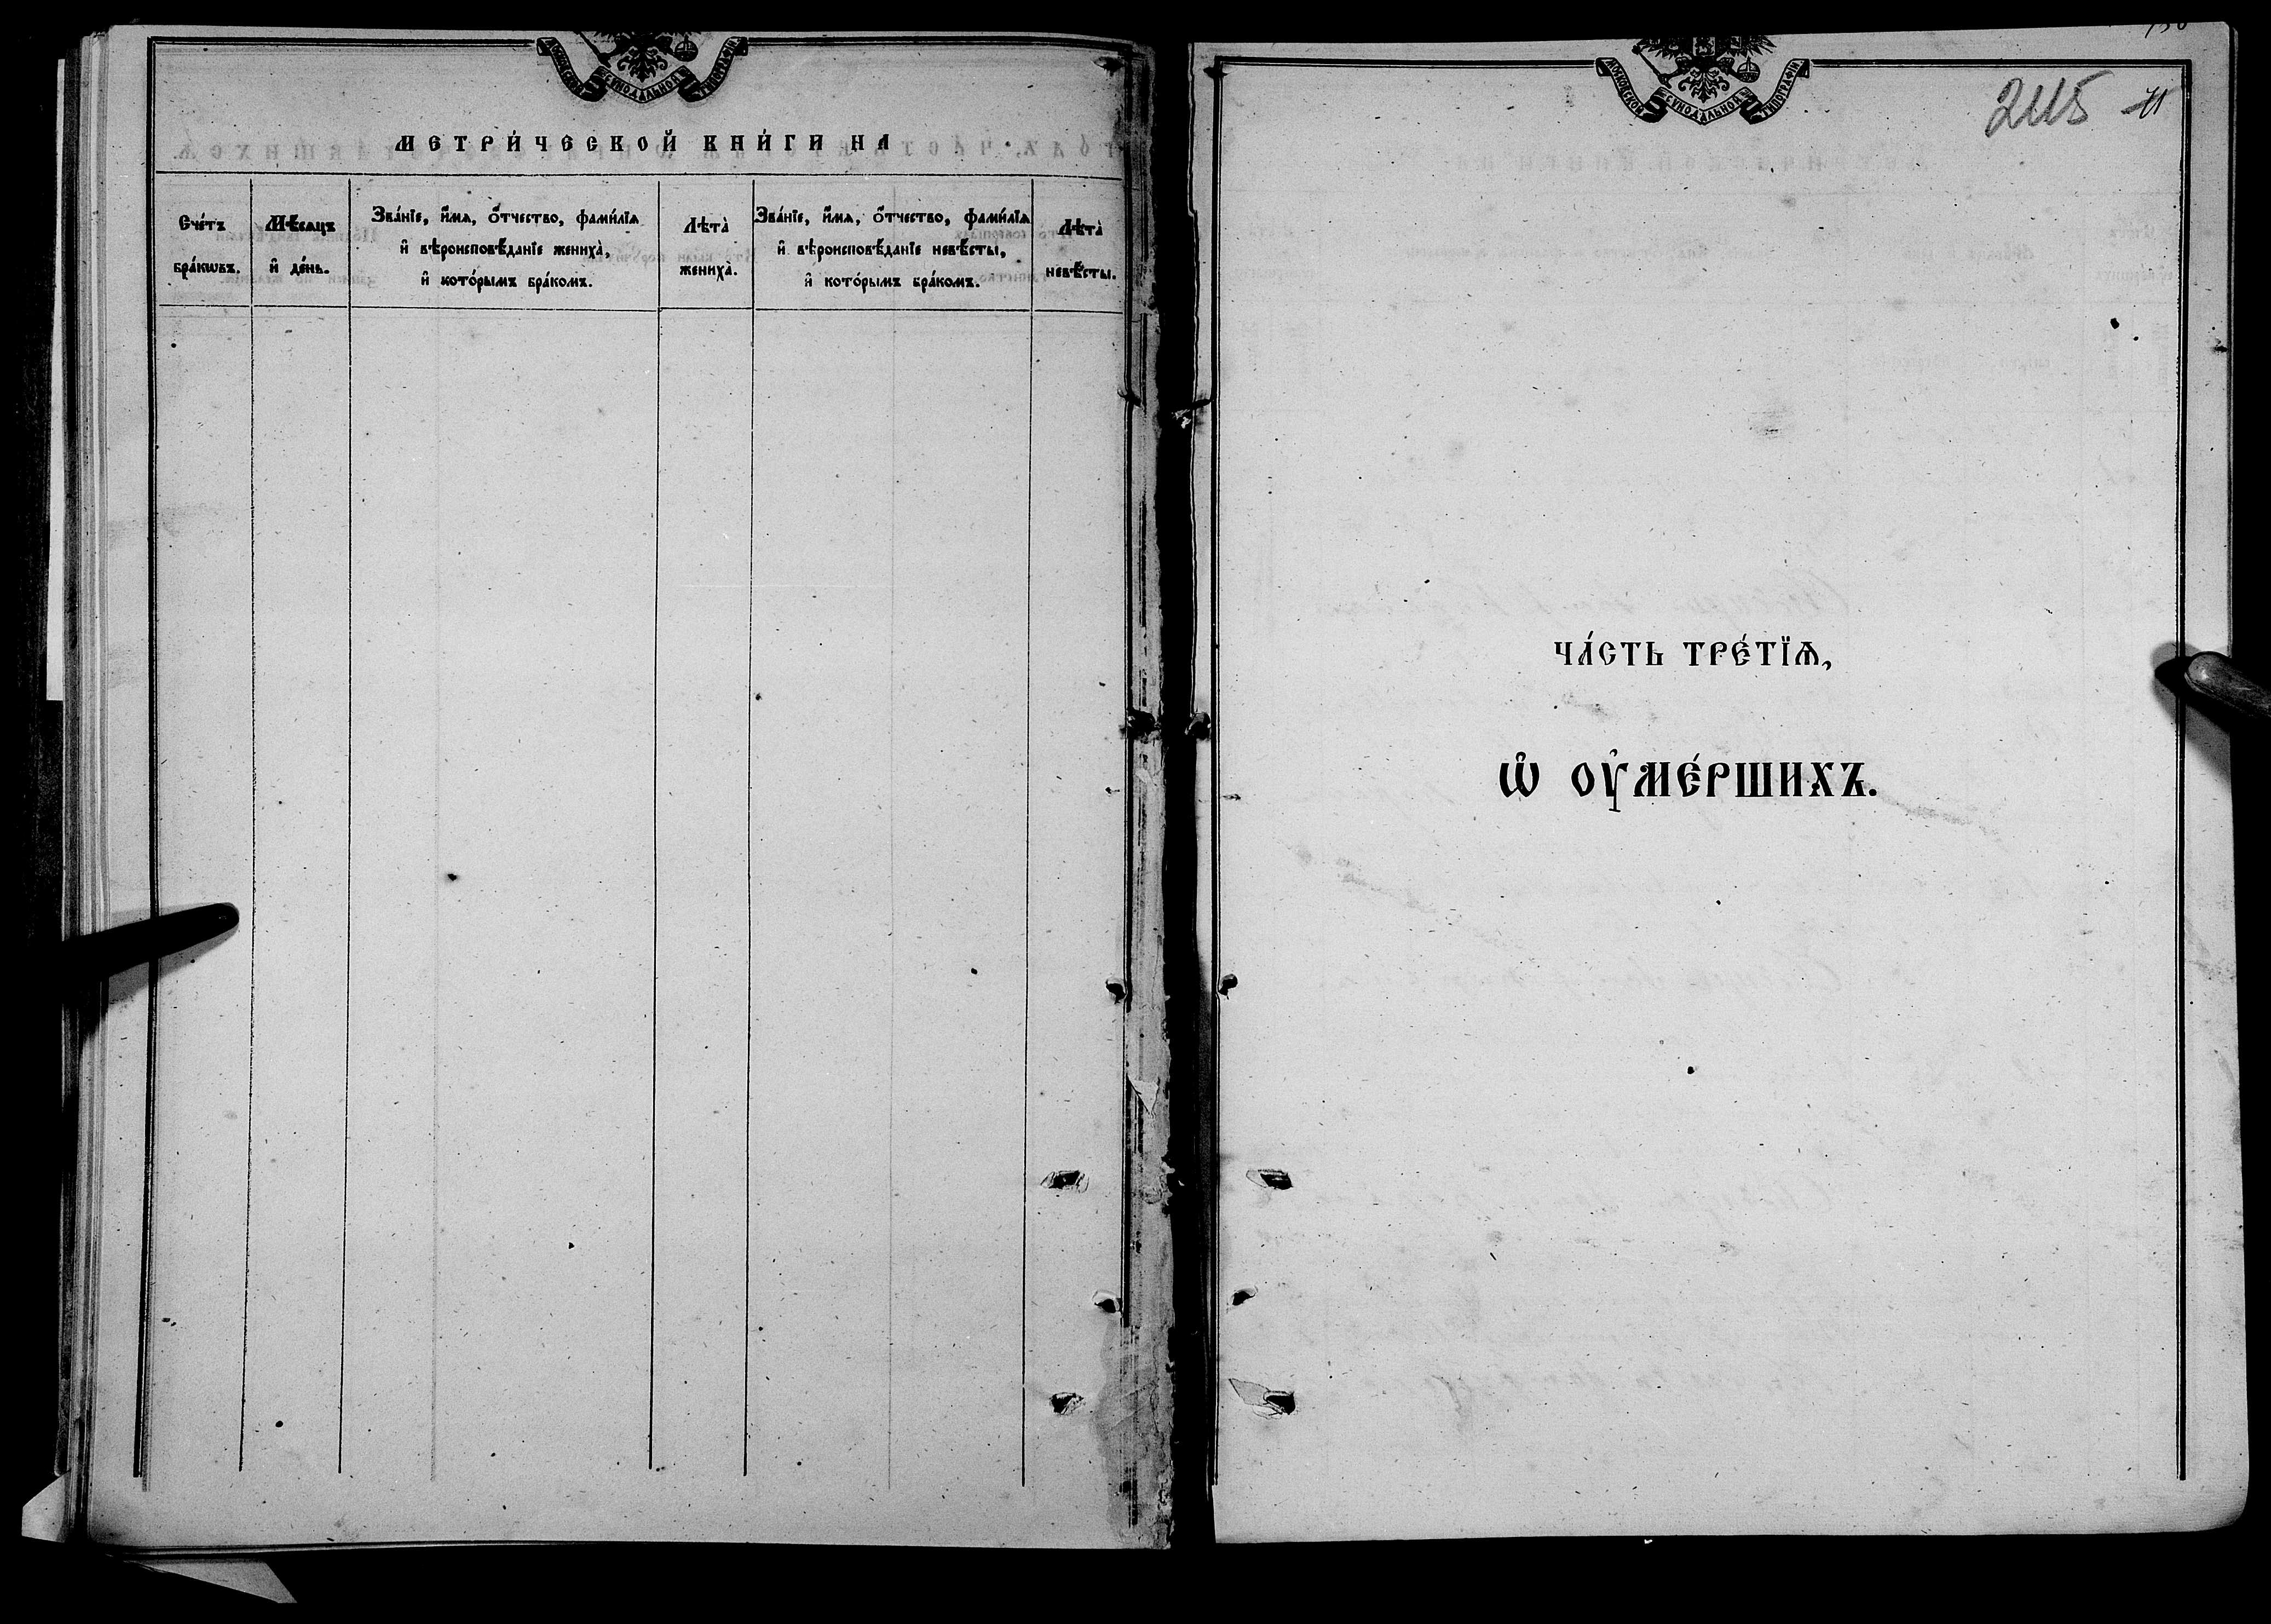 МОСКОВСКОЙ СѴНОДАЛЬНОЙ ТИПОГРАФІИ.
МЕТРИ́ЧЕСКОЙ КНИ́ГИ НА
Сче́тъ
бра́кѡвъ.
Мѣ́сяцъ
и҆ де́нь.
Зва́нїе, и҆́мѧ, ѻ҆́тчество, фами́лїѧ
и҆ вѣроисповѣ́данїе жениха̀,
и҆ кото́рымъ бра́комъ.
Лѣта̀
жениха̀.
Зва́нїе, и҆́мѧ, ѻ҆́тчество, фами́лїѧ
и҆ вѣроисповѣ́данїе невѣ́сты,
и҆ кото́рымъ бра́комъ.
Лѣта̀
невѣ́сты.
МОСКОВСКОЙ СѴНОДАЛЬНОЙ ТИПОГРАФІИ.
245
ЧА́СТЬ ТРЕ́ТЇѦ,
Ѡ҆ ОУ҆МЕ́РШИХЪ.